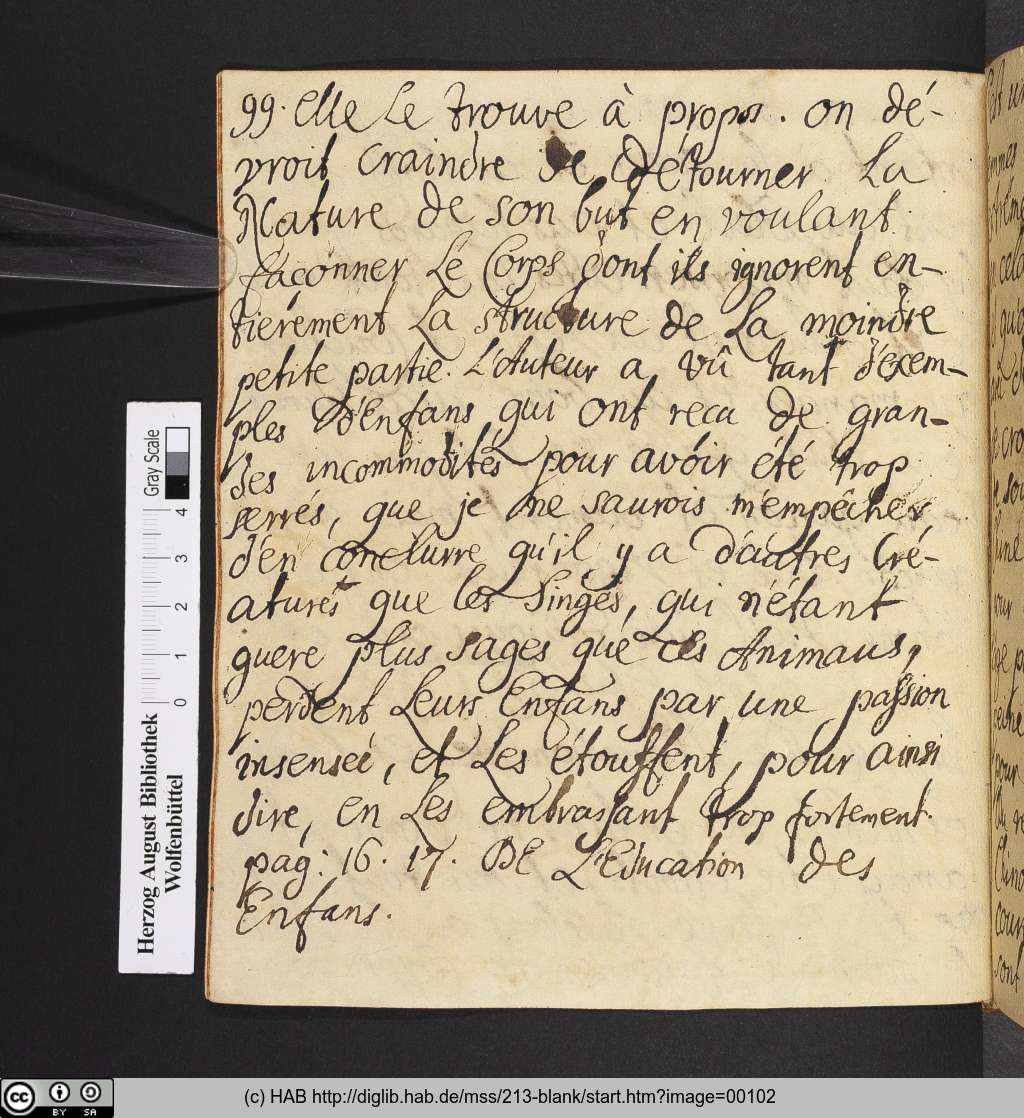 99. Elle Le trouve à propos. on dé-
vroit craindre de détourner La
Nature de son but en voulant
façonner Le Corps dont ils ignorent en-
tierement La structure de La moindre
petite partie. L'Auteur a vû tant d'exem-
ples d'Enfans qui ont recu de gran-
des incommodités pour avoir été trop
serrés, que je ne saurois m'empêcher
d'en conclurre qu'il y a d'autres Cré-
atures que les Singes, qui n'étant
guere plus sages que ces Animaus,
perdent Leurs Enfans par une passion
inseneé, et Les étouffent, pour ainsi
dire, en Les embrassant trop fortement.
pag: 16. 17. DE L'Education des
Enfans.
Herzog August Bibliothek
Wolfenbüttel
Gray Scale
0 1 2 3 4
cc BY SA
(c) HAB http://diglib.hab.de/mss/213-blank/start.htm?image=00102